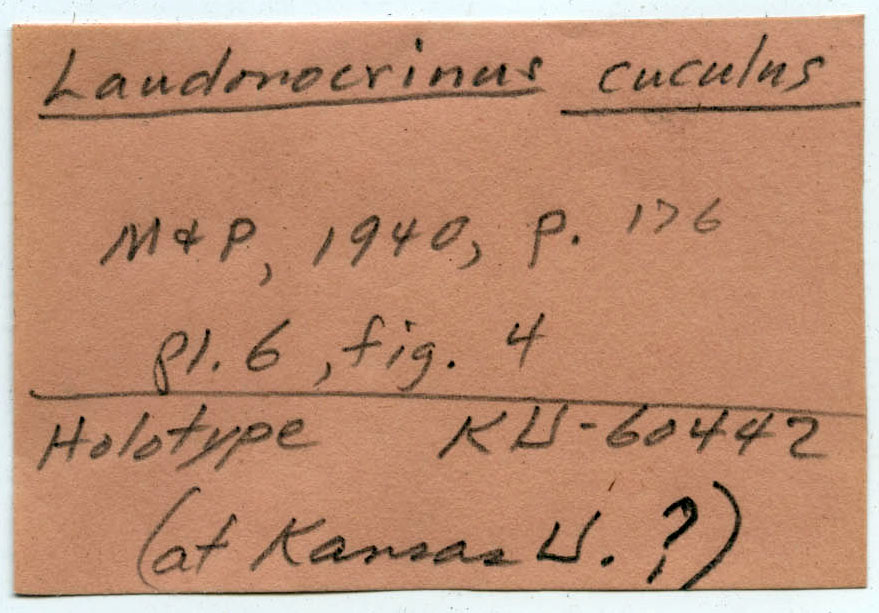 Laudonocrinus cuculus
M & P, 1940, p. 176
pl. 6, fig. 4
Holotype KU-60442
(at Kansas U. ?)